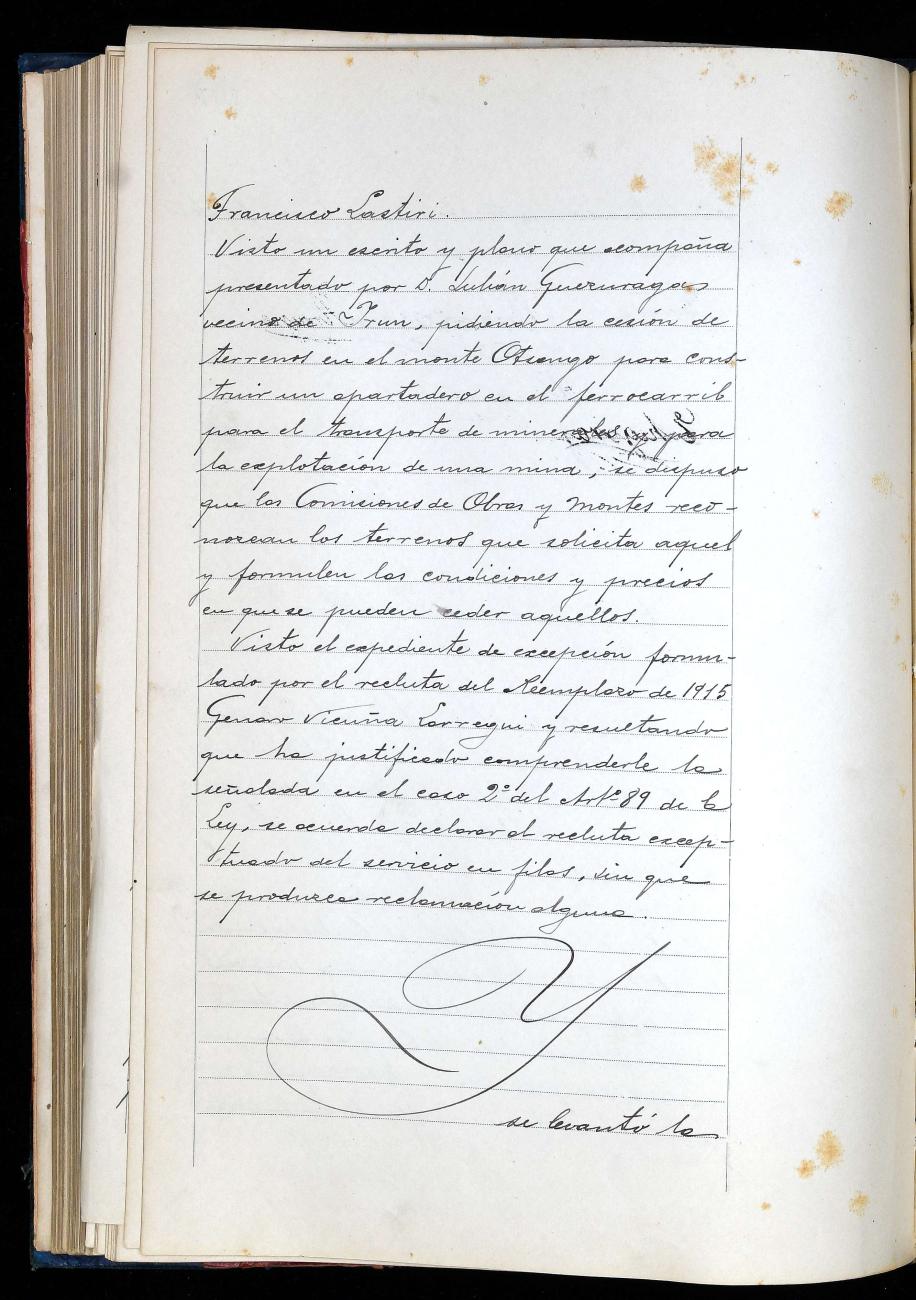 Francisco Lastiri.
Visto un escrito y plano que acompaña
presentado por D. Julián Guezuraga
vecino de Irun, pidiendo la cesión de
terrenos en el monte Otsango para cons-
truir un apartadero en el ferrocarril
para el transporte de minerales para
la explotación de una mina, se dispuso
que las Comisiones de Obras y Montes reco-
nozcan los terrenos que solicita aquel
y formulen las condiciones y precios
en que se pueden ceder aquellos.
Visto el expediente de excepción formu-
lado por el recluta del Reemplazo de 1915
Genaro Vicuña Larregui y resultando
que ha justificado comprenderle la
señalada en el caso 2º del Artº 89 de la
Ley, se acuerda declarar al recluta excep-
tuado del servicio en filas, sin que
se produzca reclamación alguna.
Y
se levantó la